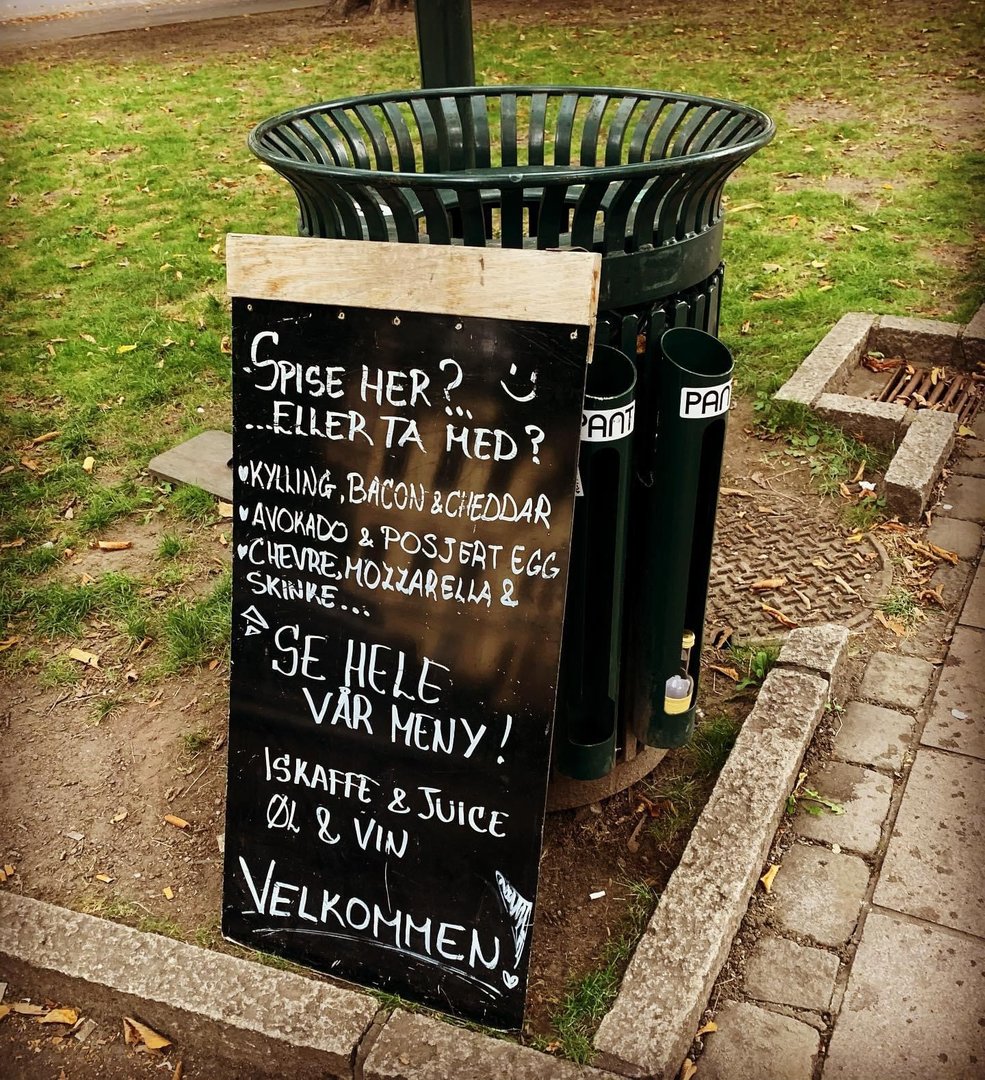 SPISE HER?...
...ELLER TA MED?
KYLLING, BACON & CHEDDAR
AVOKADO & POSJERT EGG
CHEVRE, MOZZARELLA &
SKINKE...
SE HELE
VÅR MENY!
ISKAFFE & JUICE
ØL & VIN
VELKOMMEN!
PANT
PAN